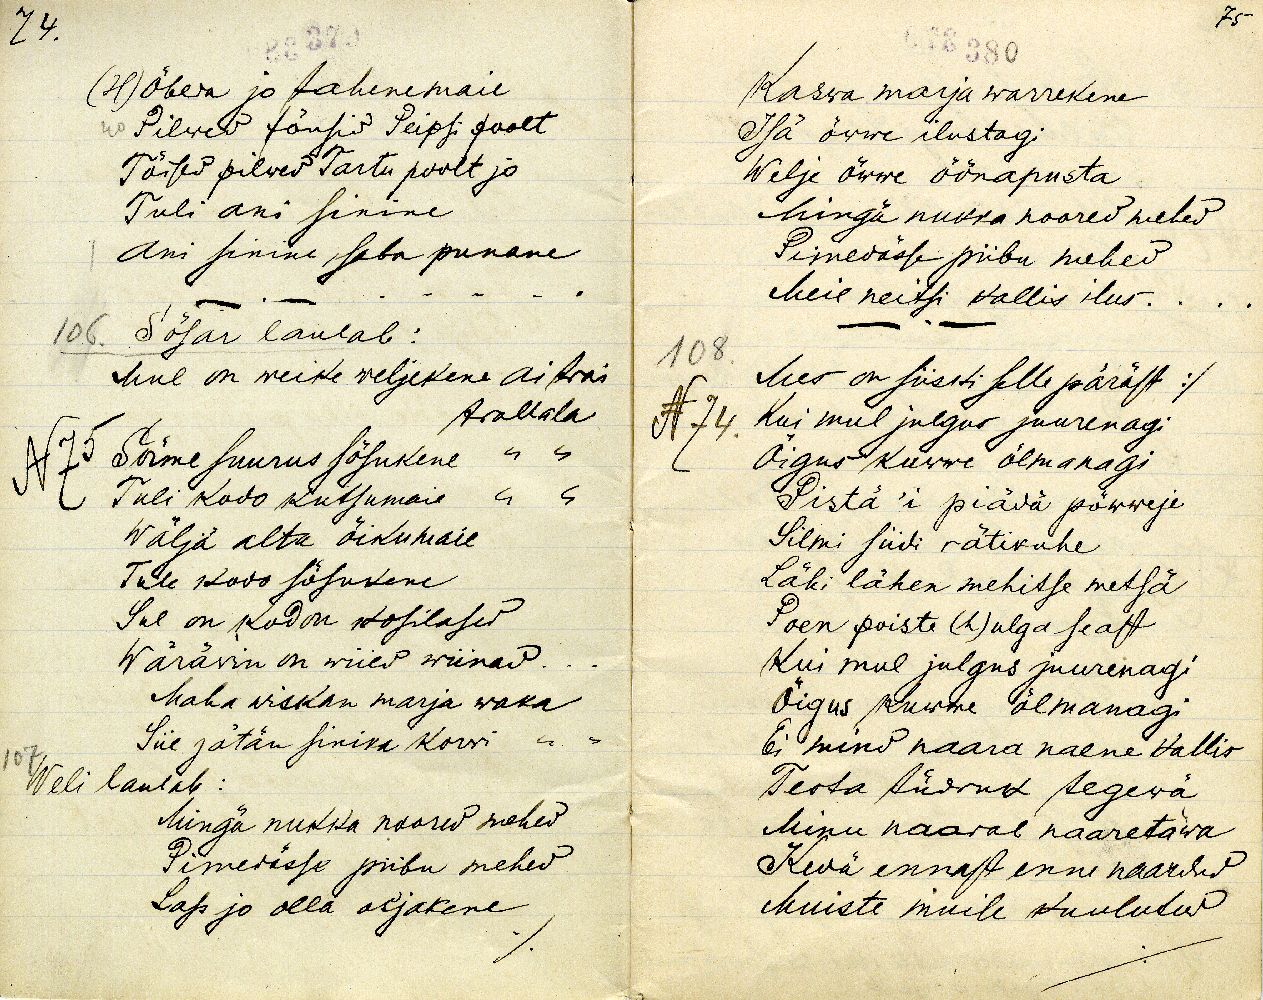 74.
379
(H)õbeda jo tahenemaie
no Pilwed tõusid Peipsi poolt
Tõised pilwed Tartu poolt jo
Tuli ani sinine
Ani sinine saba punane
106. Sõsar laulab:
Mul on weike weljekene ai trai
trallala
N 75
Sõrme suurus sõsukene " "
Tuli kodo kutsumaie " "
Wäljä alta õikumaie
Tule kodo sõsukene
Sul on kodon kosilased
Wäräwin on wiied wiinad . . .
Maha wiskan marja waka
Siie jätän sinika korwi " "
107.
Weli laulab:
Mingä nukka noored mehed
Pimedässe piibu mehed
Lass jo olla oljakene
./.
75
380
Kaswa marja warrekene
Isä õwwe ilustagi
Welje õwwe õõnapusta
Mingä nukka noored mehed
Pimedässe piibu mehed
Meil neitsi kallis ilus. . . .
108.
N 74.
Mes on siiski selle päräst :/
Kui mul julgus juurenagi
Õigus kuwwe õlmanagi
Pistä'i piädä põwweje
Silmi siidi rätikuhe
Läbi lähen mehitse metsä
Poen poiste (h)ulga seast
Kui mul julgus juurenagi
Õigus kuwwe õlmanagi
Ei mind naara naene kallis
Teota tüdruk tegewä
Minu naaral naaretäwa
Kedä ennast enne naardud
Muiste muile kuulutud
./.